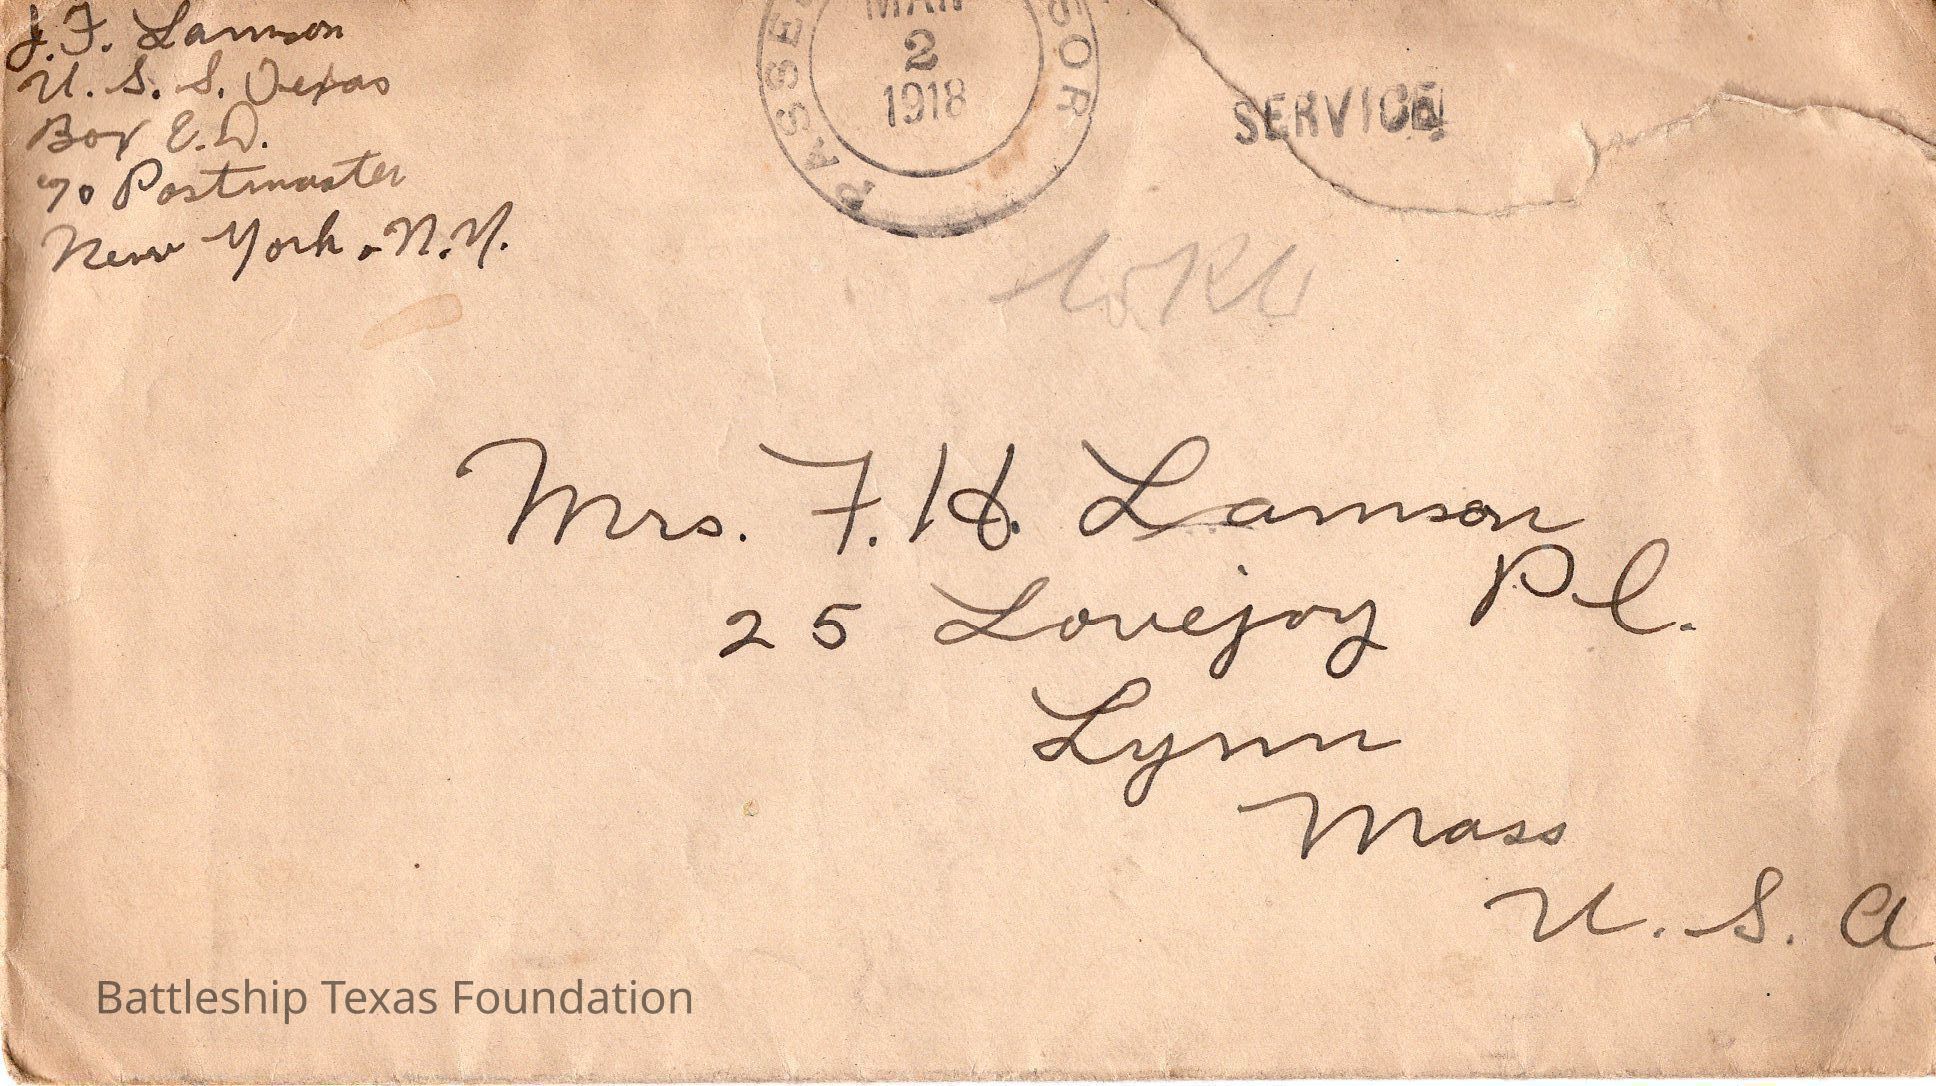 J. F. Lamson
U. S. S. Texas
Box E.D.
℅ Postmaster
New York. N.Y.
PASSED SOR
MAR
2
1918
SERVICE
Mrs. F. H. Lamson
25 Lovejoy Pl.
Lynn
Mass
U. S. A
Battleship Texas Foundation